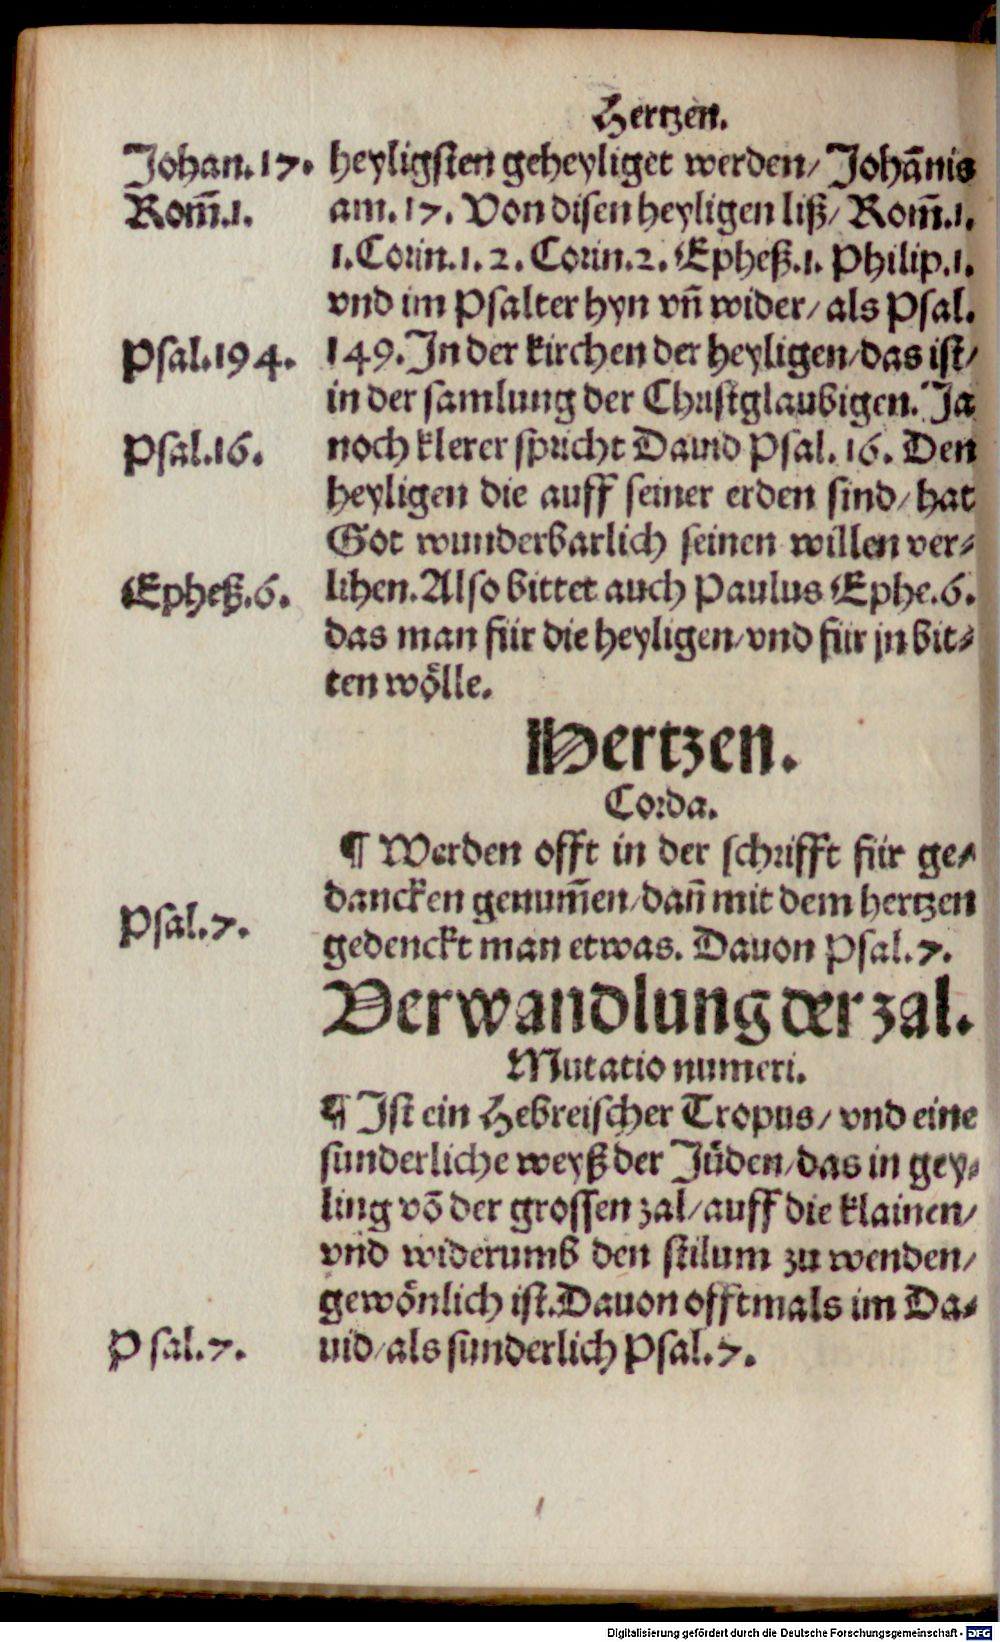 Hertzen.
Johan. 17. heyligsten geheyliget werden/ Johãnis
Rom̃.1. am. 17. Von disen heyligen liß/ Rom̃.1.
1. Corin. 1. 2. Corin. 2. Epheß. 1. Philip. 1.
vnd im Psalter hyn vñ wider/ als Psal.
Psal.194. 149. In der kirchen der heyligen/das ist/
in der samlung der Christglaubigen. Ja
Psal.16. noch klerer spricht Dauid Psal. 16. Den
heyligen die auff seiner erden sind/ hat
Got wunderbarlich seinen willen ver⸗
Epheß.6. lihen. Also bittet auch Paulus Ephe. 6.
das man für die heyligen/vnd für jn bit⸗
ten wo̊lle.
Hertzen.
Corda.
¶ Werden offt in der schrifft für ge⸗
dancken genum̃en/dañ mit dem hertzen
Psal.7. gedenckt man etwas. Dauon Psal. 7.
Verwandlung der zal.
Mutatio numeri.
¶ Ist ein Hebreischer Tropus/ vnd eine
sunderliche weyß der Jüden/das in gey⸗
ling võ der grossen zal/auff die klainen/
vnd widerumb den stilum zu wenden/
gewönlich ist. Dauon offtmals im Da⸗
Psal.7. uid/als sunderlich Psal. 7.
Digitalisierung gefördert durch die Deutsche Forschungsgemeinschaft - DFG